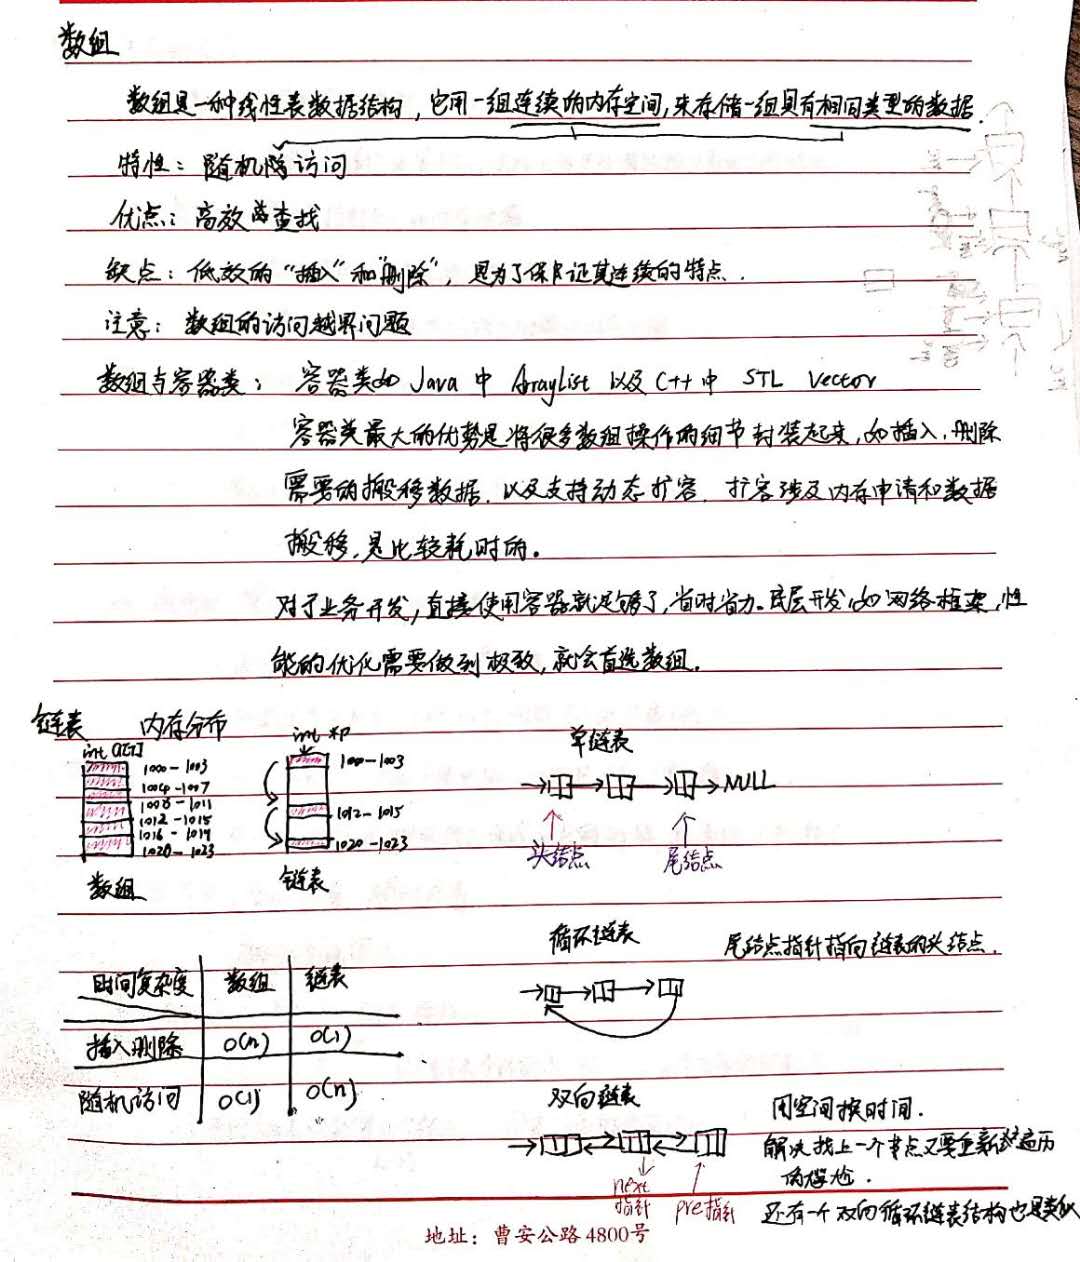 数组
数组是一种线性表数据结构，它用一组连续的内存空间，来存储一组具有相同类型的数据.
特性：随机访问
优点：高效的查找
缺点：低效的“插入”和“删除”，是为了保证其连续的特点.
注意：数组的访问越界问题
数组与容器类：容器类如 Java 中 ArrayList 以及 C++ 中 STL Vector
容器类最大的优势是将很多数组操作的细节封装起来,如插入,删除
需要的搬移数据. 以及支持动态扩容. 扩容涉及内存申请和数据
搬移,是比较耗时的。
对于业务开发,直接使用容器就足够了,省时省力。底层开发,如网络框架,性
能的优化需要做到极致,就会首选数组.
链表 内存分布
int a[]
1000-1003
1004-1007
1008-1011
1012-1015
1016-1019
1020-1023
数组
int *p
1000-1003
1012-1015
1020-1023
链表
单链表
NULL
头结点 尾结点
循环链表 尾结点指针指向链表的头结点.
时间复杂度 数组 链表
插入删除 O(n) O(1)
随机访问 O(1) O(n)
双向链表
用空间换时间.
解决找上一个节点又要重新遍历
的尴尬.
next
指针
pre指针
还有一个双向循环链表结构也是类似
地址：曹安公路4800号